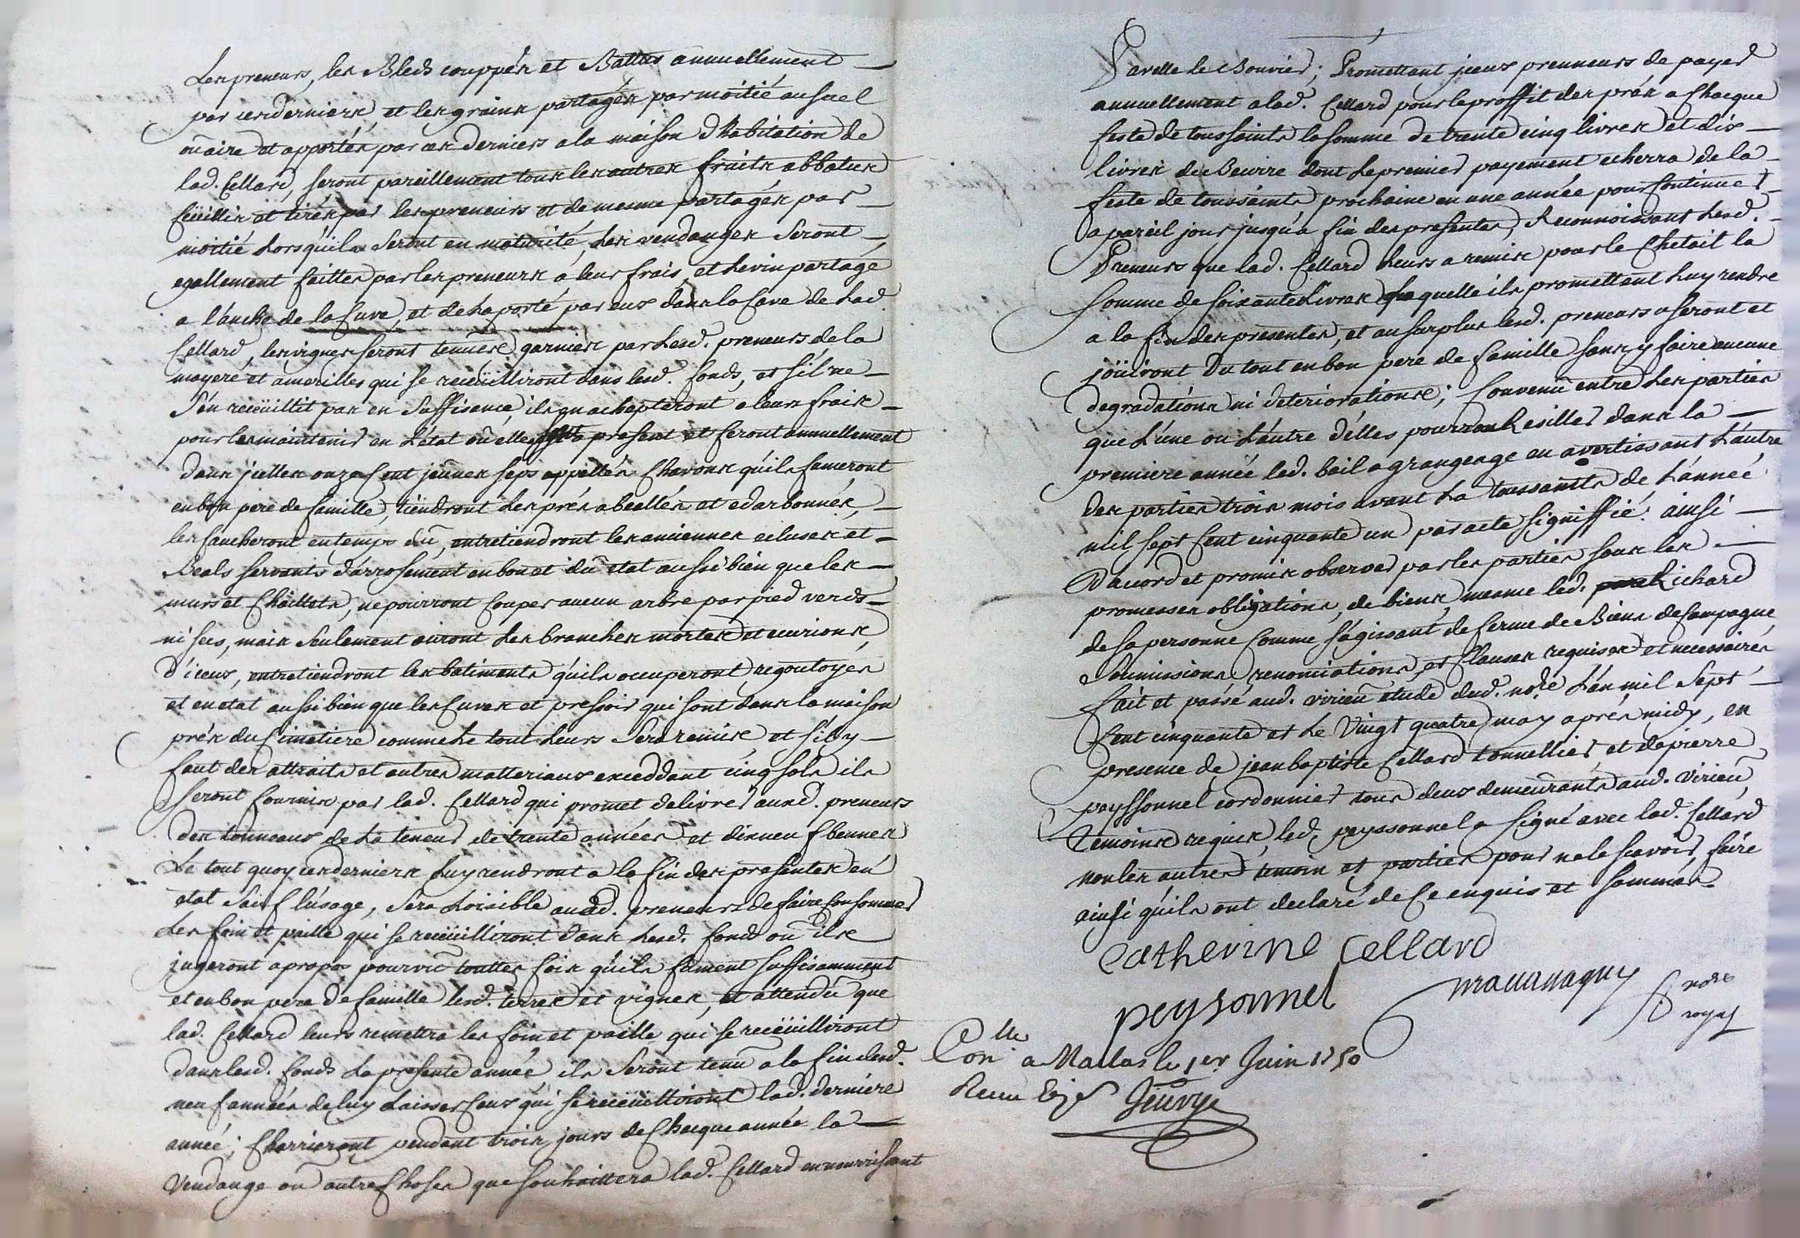 Les preneurs, les Bleds couppés et Battus annuellement
par ces derniers, et les grains partagés par moitié au suel
ou aire et apportés par ces derniers a la maison d'habitation de
lad. Cellard, seront pareillement tous les autres fruits abbatus
ceüillis et tirés par les preneurs et de mesme partagés par
moitié Lorsquils seront en maturité, Les vendanges seront
egallement faittes par les preneurs a leurs frais, et Le vin partagé
a l'anche de la Cuve, et de la porté par eux dans la Cave de Lad.
Cellard, les vignes seront tenues garnies par Lesd. preneurs de la
mayere et amerilles qui se receüilliront dans lesd. fonds, et s'il ne
s'en receüillit pas en suffisance, ils en achapteront a leurs frais
pour les maintenir en L'état où elles sont a present et feront annuellement
dans icelles onze Cent jeunes seps appellés Chavons qu'ils fameront
en bon pere de famille, tiendront Les prés abealles et edarbonnés,
les faucheront en temps dû, entretiendront les anciennes ecluses et
Beals servants d'arrosement en bon et dû etat aussi bien que les
murs et Chaillets, ne pourront Couper aucun arbre par pied verds
ni secs, mais seulement auront Les branches mortes et
D'iceux, entretiendront les batiments qu'ils occuperont, regoutoyes
et en etat aussi bien que les Cuves et pressoir qui sont dans la maison
prés du Cimetiere comme Le tout Leurs sera remise et s'il y
faut des attraits et autres matteriaux exceddant cinq sols ils
seront fournis par lad. Cellard qui promet delivrer aux d. preneurs
des tonneaux de La teneur de trente années et dix neuf bennes
Le tout quoy ces derniers Luy rendront a la fin des presentes en
etat sauf L'usage, sera Loisible aux d. preneurs de faire Consommer
Les foin et paille qui se receüilliront dans Lesd. fonds où ils
jugeront apropos pourvû touttes fois qu'ils fament suffisamment
et en bon pere de famille lesd. terres et vignes, et attendu que
lad. Cellard leurs remettra les foin et paille qui se receüilliront
dans lesd. fonds La presente année ils seront tenu a la fin desd.
neuf années de luy Laisser Ceux qui se receüilliront lad. derniere
année; Charrieront pendant trois jours de Chaque année la
Vendange ou autre Choses que souhaittera lad. Cellard en nourrissant
Pareille le Bouvier; Promettant iceux prenneurs de payer
annuellement a lad. Cellard pour le proffit des prés a Chaque
feste de toussaints la somme de trente cinq livres et dix
livres de Beurre dont Le premier payement echerra de la
feste de toussaints prochaine en une année pour continuer
a pareil jour jusqu'a fin des presentes, Reconnoissant Lesd.
Preneurs que lad. Cellard Leurs a remise pour le Chetail la
somme de soixante Livres Laquelle ils promettent Luy rendre
a la fin des presentes, et au surplus lesd. preneurs useront et
joüiront Du tout en bon pere de famille sans y faire aucune
degradations ni deteriorations; Convenu entre Les parties
que L'une ou L'autre d'elles pourront Resilier dans la
premiere année led. bail a grangeage en avertissant L'autre
des parties trois mois avant La toussaints de L'année
mil sept Cent cinquante un par acte signiffié. ainsi
D'accord et promis observer par les parties sous les
promesses obligations, de biens mesme led. Richard
de sa personne Comme s'agissant de ferme de Biens de Campagne
soumissions, renonciations, et Clauses requises et necessaires
fait et passé aud. virieu etude dud. nore L'an mil sept
Cent cinquante et Le Vingt quatre may aprés midy, en
presence de jean baptiste Cellard tonnellier et de pierre
peyssonnel cordonnier tous deux demeurants aud. Virieu,
Temoins requis, led. peyssonnel a signé avec lad. Cellard
non les autres temoin et parties pour ne le sçavoir faire
ainsi qu'ils ont declaré de Ce enquis et sommés.
Catherine Cellard
peysonnel
Mavanagny nore
royal
Conlle a Malas le 1er Juin 1750